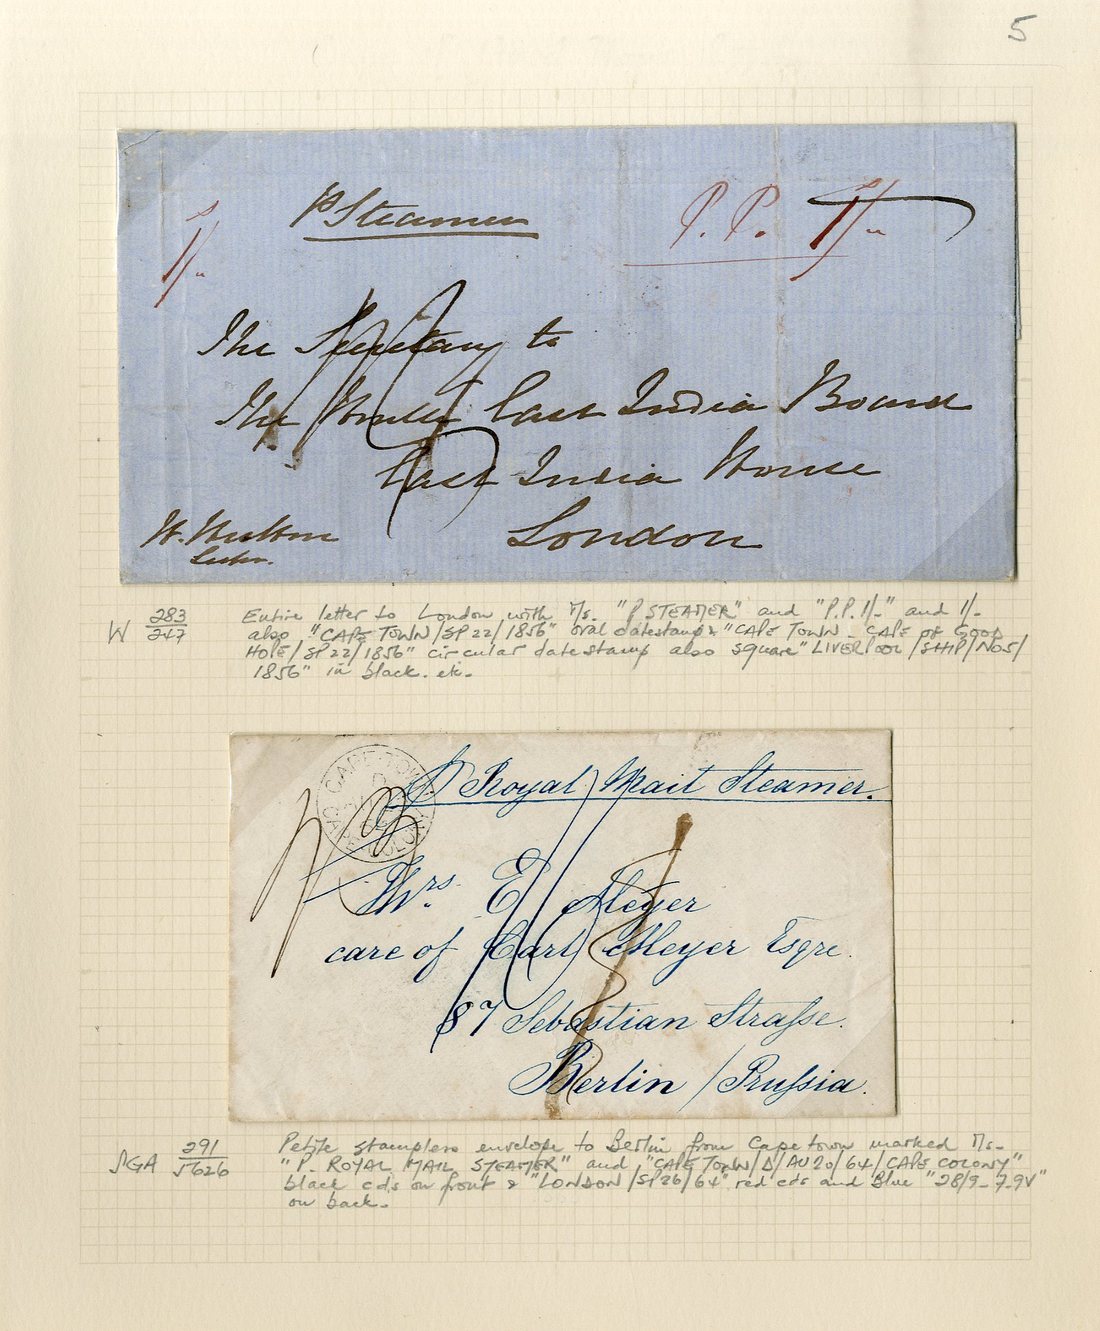 5
P Steamer
P.P. 1/-
1/-
The Secretary to
The Honble East India Board
East India House
London
W. Hutton
W 283/247
Entire letter to London with Ms. "P STEAMER" and "P.P. 1/-" and 1/-
also "CAPE TOWN/SP 22/1856" oval datestamp & "CAPE TOWN - CAPE OF GOOD
HOPE/SP 22/1856" circular datestamp also square "LIVERPOOL/SHIP/NO5/
1856" in black. etc.
P Royal Mail Steamer.
CAPE TOWN
CAPE COLONY
Mrs. E Meyer
care of Carl Meyer Esqre.
87 Sebastian Straſse.
Berlin / Pruſsia.
SGA 291/5626
Petite stampless envelope to Berlin from Cape town marked Ms-
"P. ROYAL MAIL STEAMER" and "CAPE TOWN/D/AU 20/64/CAPE COLONY"
black cds on front & "LONDON/SP26/64" red cds and Blue "28/9-7-9V"
on back.